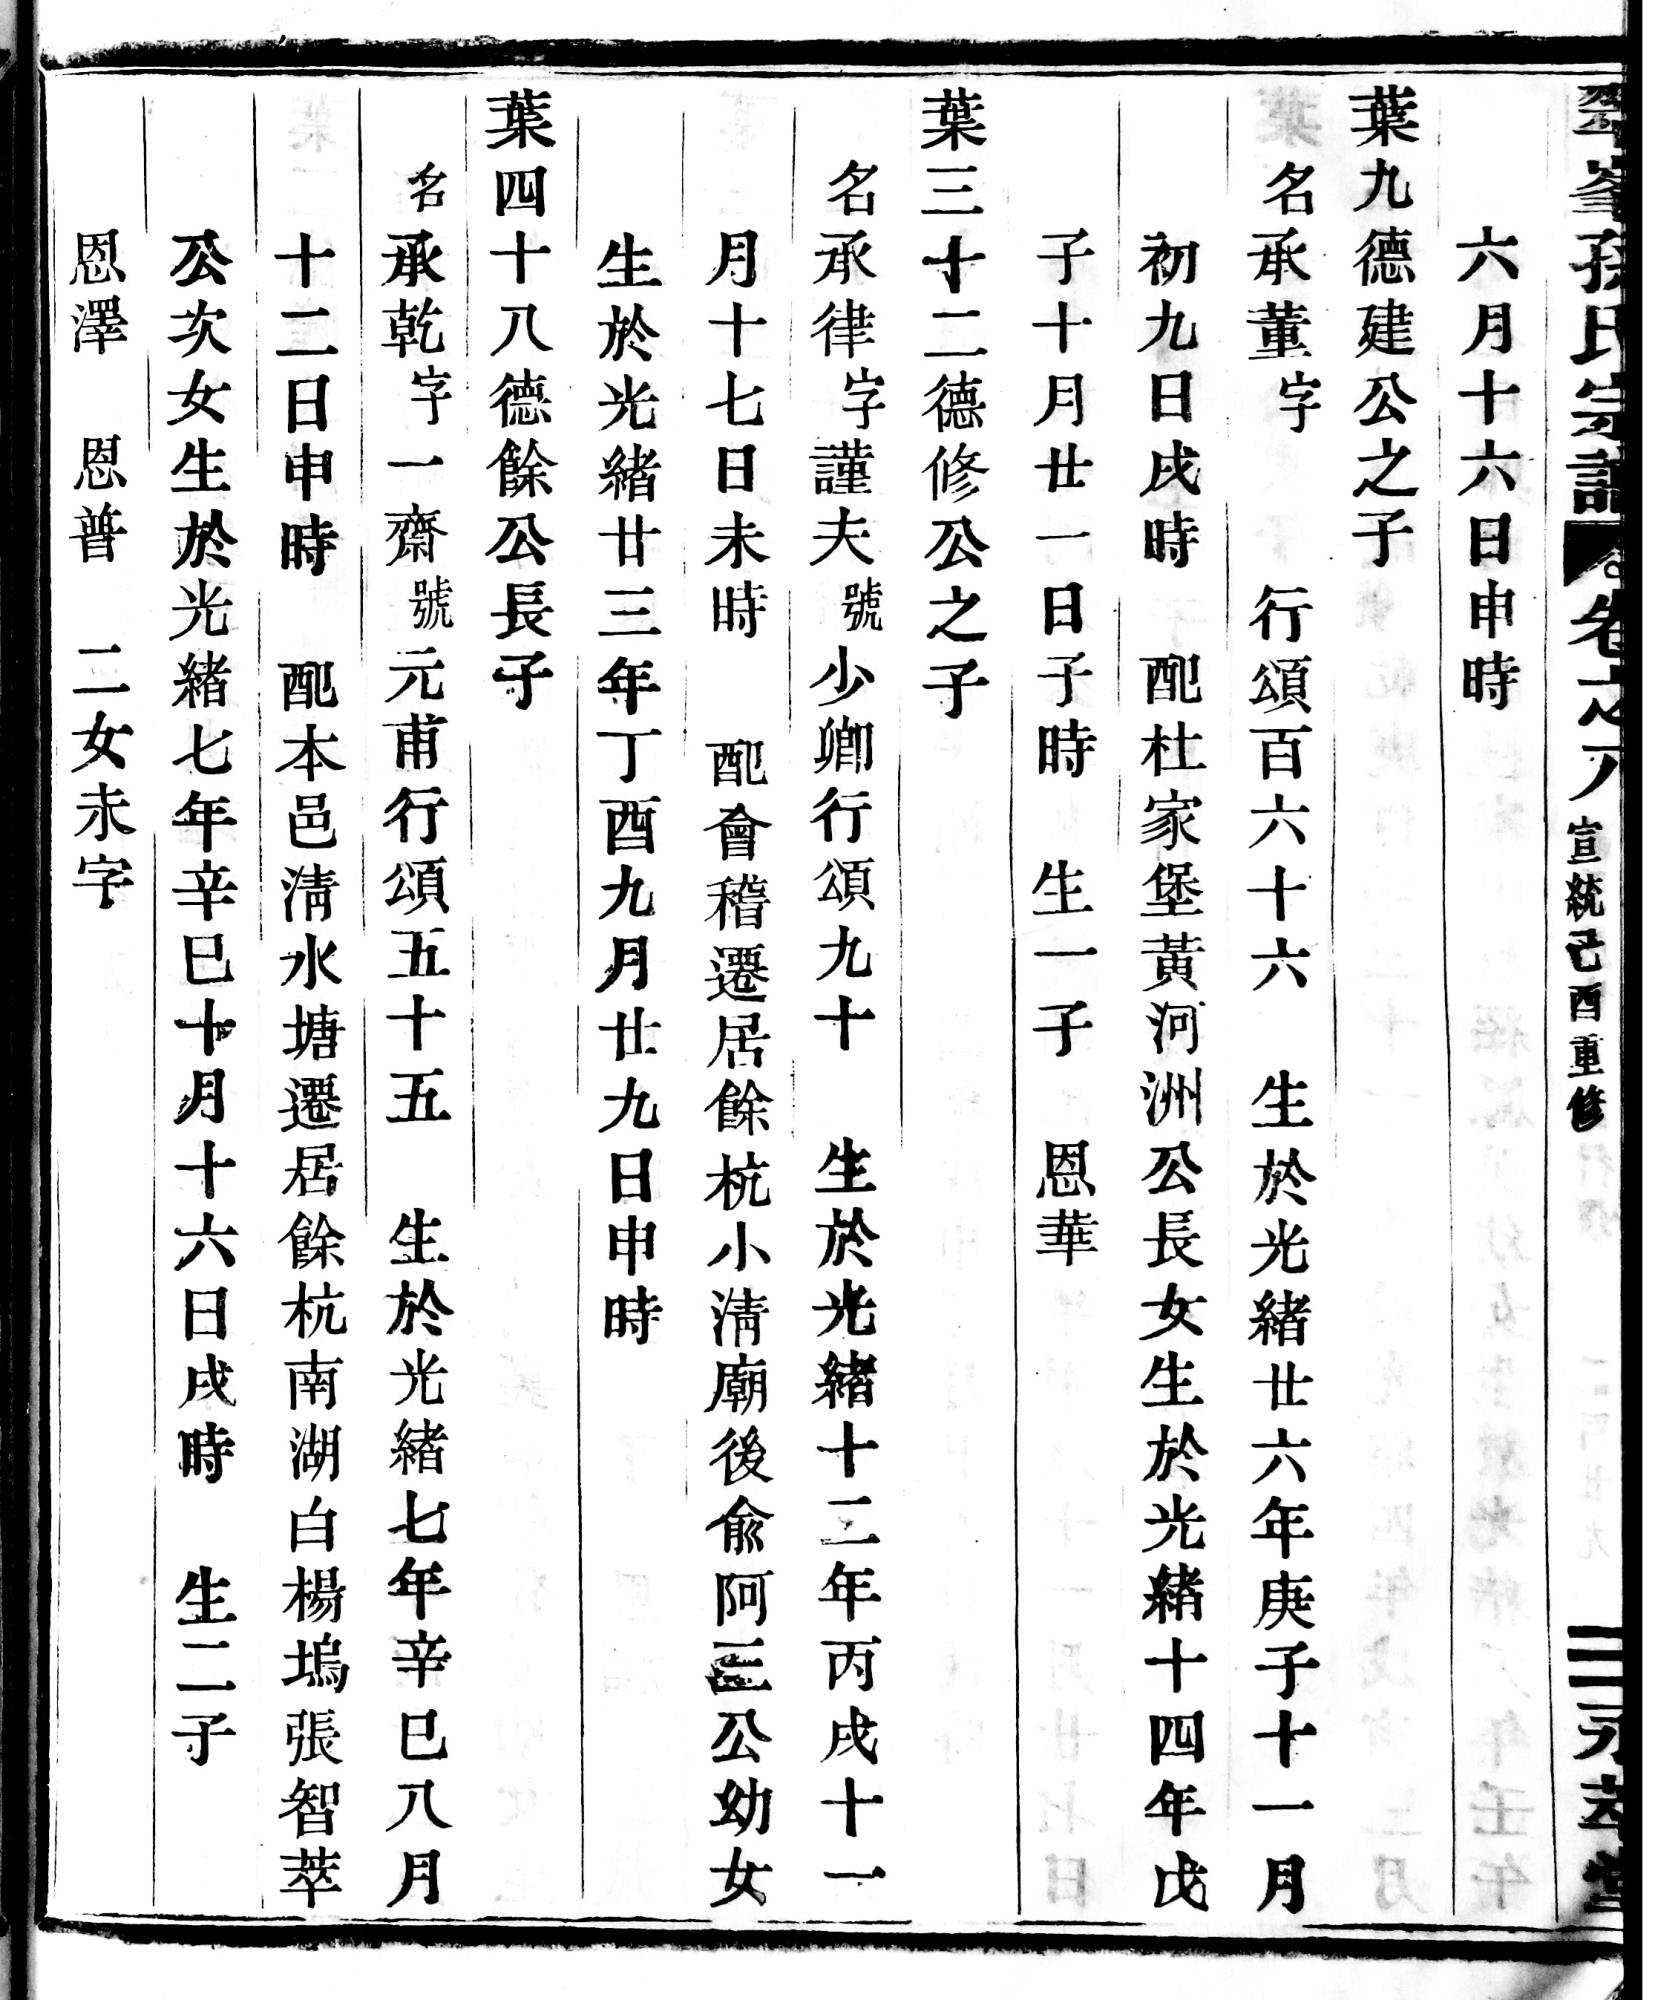 孫氏宗譜 卷之八 宣統己酉重修
六月十六日申時
葉九德建公之子
名承董字 行頌百六十六 生於光緒廿六年庚子十一月
初九日戌時 配杜家堡黃河洲公長女生於光緒十四年戊
子十月廿一日子時 生一子 恩華
葉三十二德修公之子
名承律字謹夫號少卿行頌九十 生於光緒十二年丙戌十一
月十七日未時 配會稽遷居餘杭小淸廟後俞阿三公幼女
生於光緒廿三年丁酉九月廿九日申時
葉四十八德餘公長子
名承乾字一齋號元甫行頌五十五 生於光緒七年辛巳八月
十二日申時 配本邑淸水塘遷居餘杭南湖白楊塢張智萃
公次女生於光緒七年辛巳十月十六日戌時 生二子
恩澤 恩普 二女未字